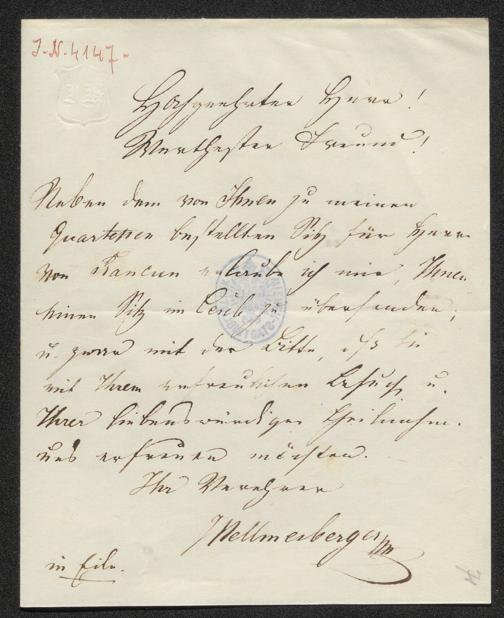 I.N. 4147.
Hochgeehrter Herr!
Werthester Freund!
Neben dem von Ihnen zu meinen
Quartetten bestellten Sitz für Herrn
von Rancun erlaube ich mir, Ihnen
einen Sitz im zu übersenden,
u. zwar mit der Bitte, daß Sie
mit Ihrem erfreulichen Besuch u.
Ihrer liebenswürdigen Theilnahme
uns erfreuen möchten.
Ihr Verehrer
JHellmesberger
in Eile.